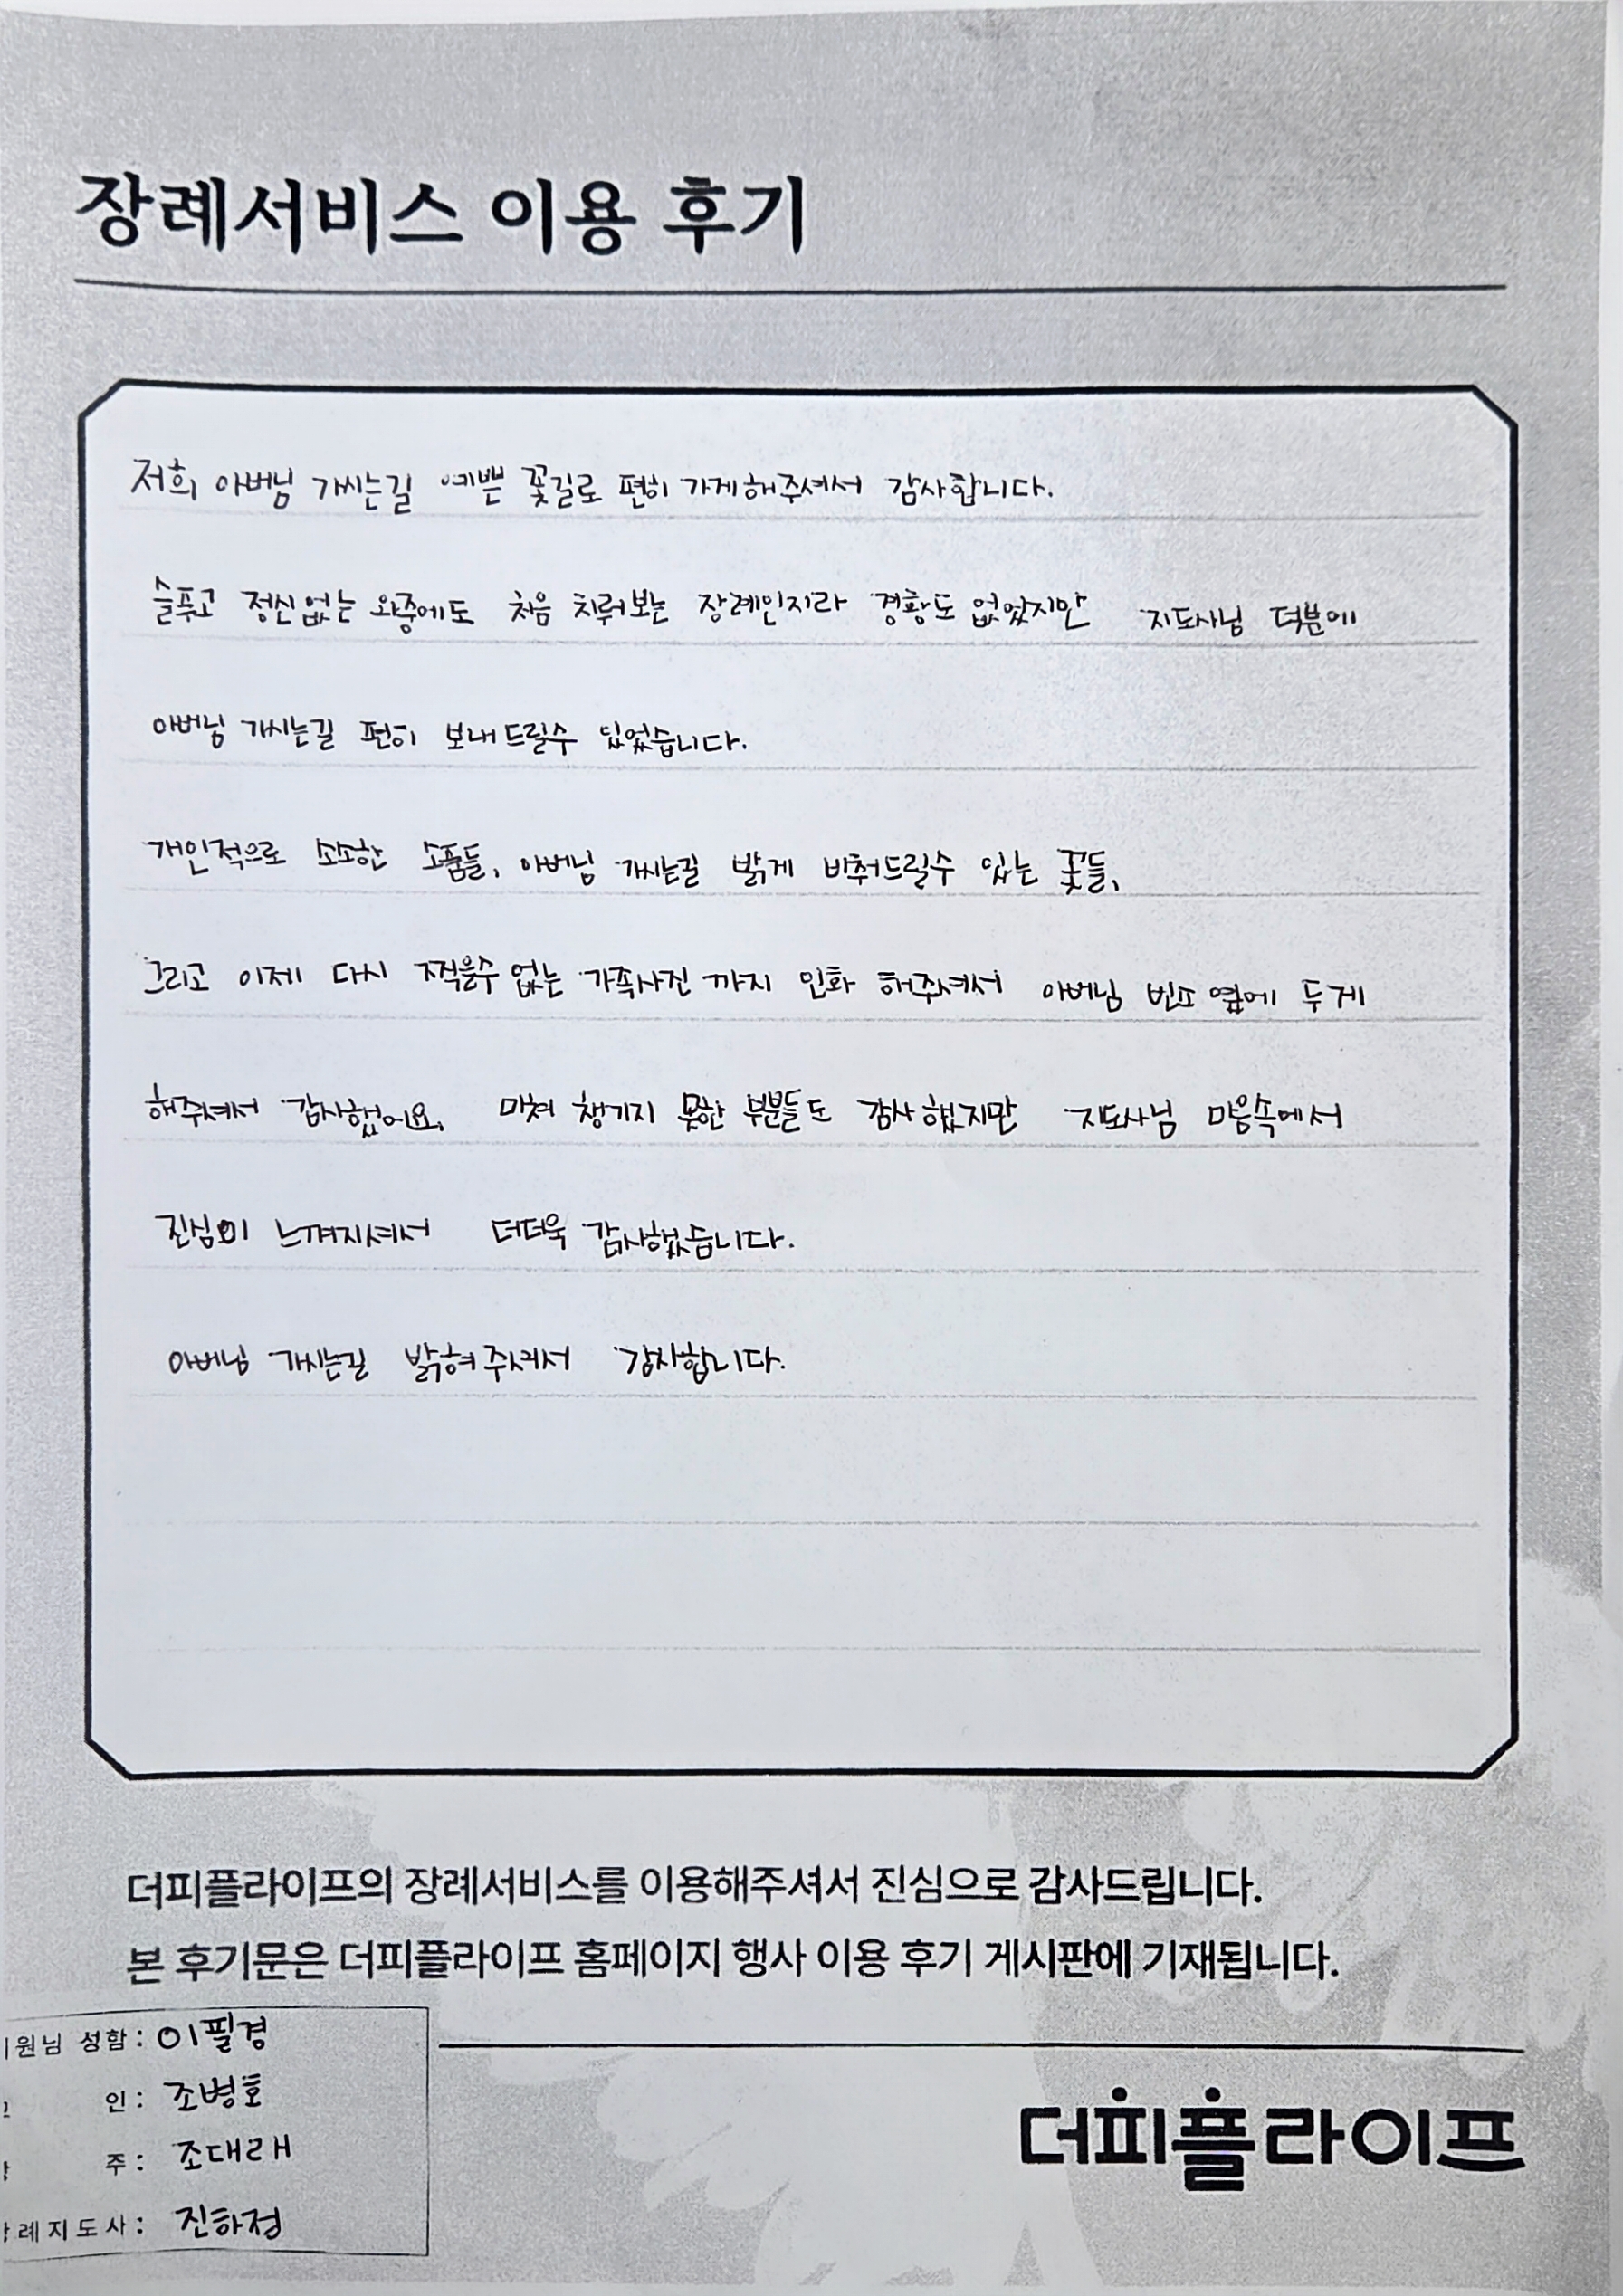 장례서비스 이용 후기
저희 아버님 가시는길 예쁜 꽃길로 편히 가게해주셔서 감사합니다.
슬푸고 정신없는 와중에도 처음 치뤄보는 장례인지라 경황도 없었지만 지도사님 덕분에
아버님 가시는길 편히 보내드릴수 있었습니다.
개인적으로 소소한 소품들, 아버님 가시는길 밝게 비춰드릴수 있는 꽃들,
그리고 이제 다시 찍을수 없는 가족사진 까지 인화 해주셔서 아버님 옆에 두게
해주셔서 감사했어요, 미쳐 챙기지 못한 부분들도 감사했지만 지도사님 마음속에서
진심이 느껴지셔서 더더욱 감사했습니다.
아버님 가시는길 밝혀주셔서 감사합니다.
더피플라이프의 장례서비스를 이용해주셔서 진심으로 감사드립니다.
본 후기문은 더피플라이프 홈페이지 행사 이용 후기 게시판에 기재됩니다.
원님 성함: 이필경
인: 조병호
주: 조대래
례지도사: 진하정
더피플라이프